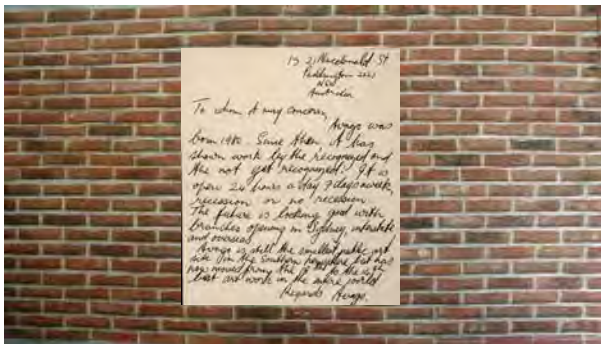 21 Macdonald St
Paddington 2021
NSW
Australia
To whom it may concern,
Avago was
born 1980. Since then it has
shown work by the recognized and
the not yet recognized. It is
open 24 hours a day 7 days a week,
recession or no recession.
The future is looking good with
branches opening in Sydney, interstate
and overseas.
Avago is still the smallest public art
site in the Southern hemisphere, but has
now moved from the to the
best art work in the entire world
Regards Avago.